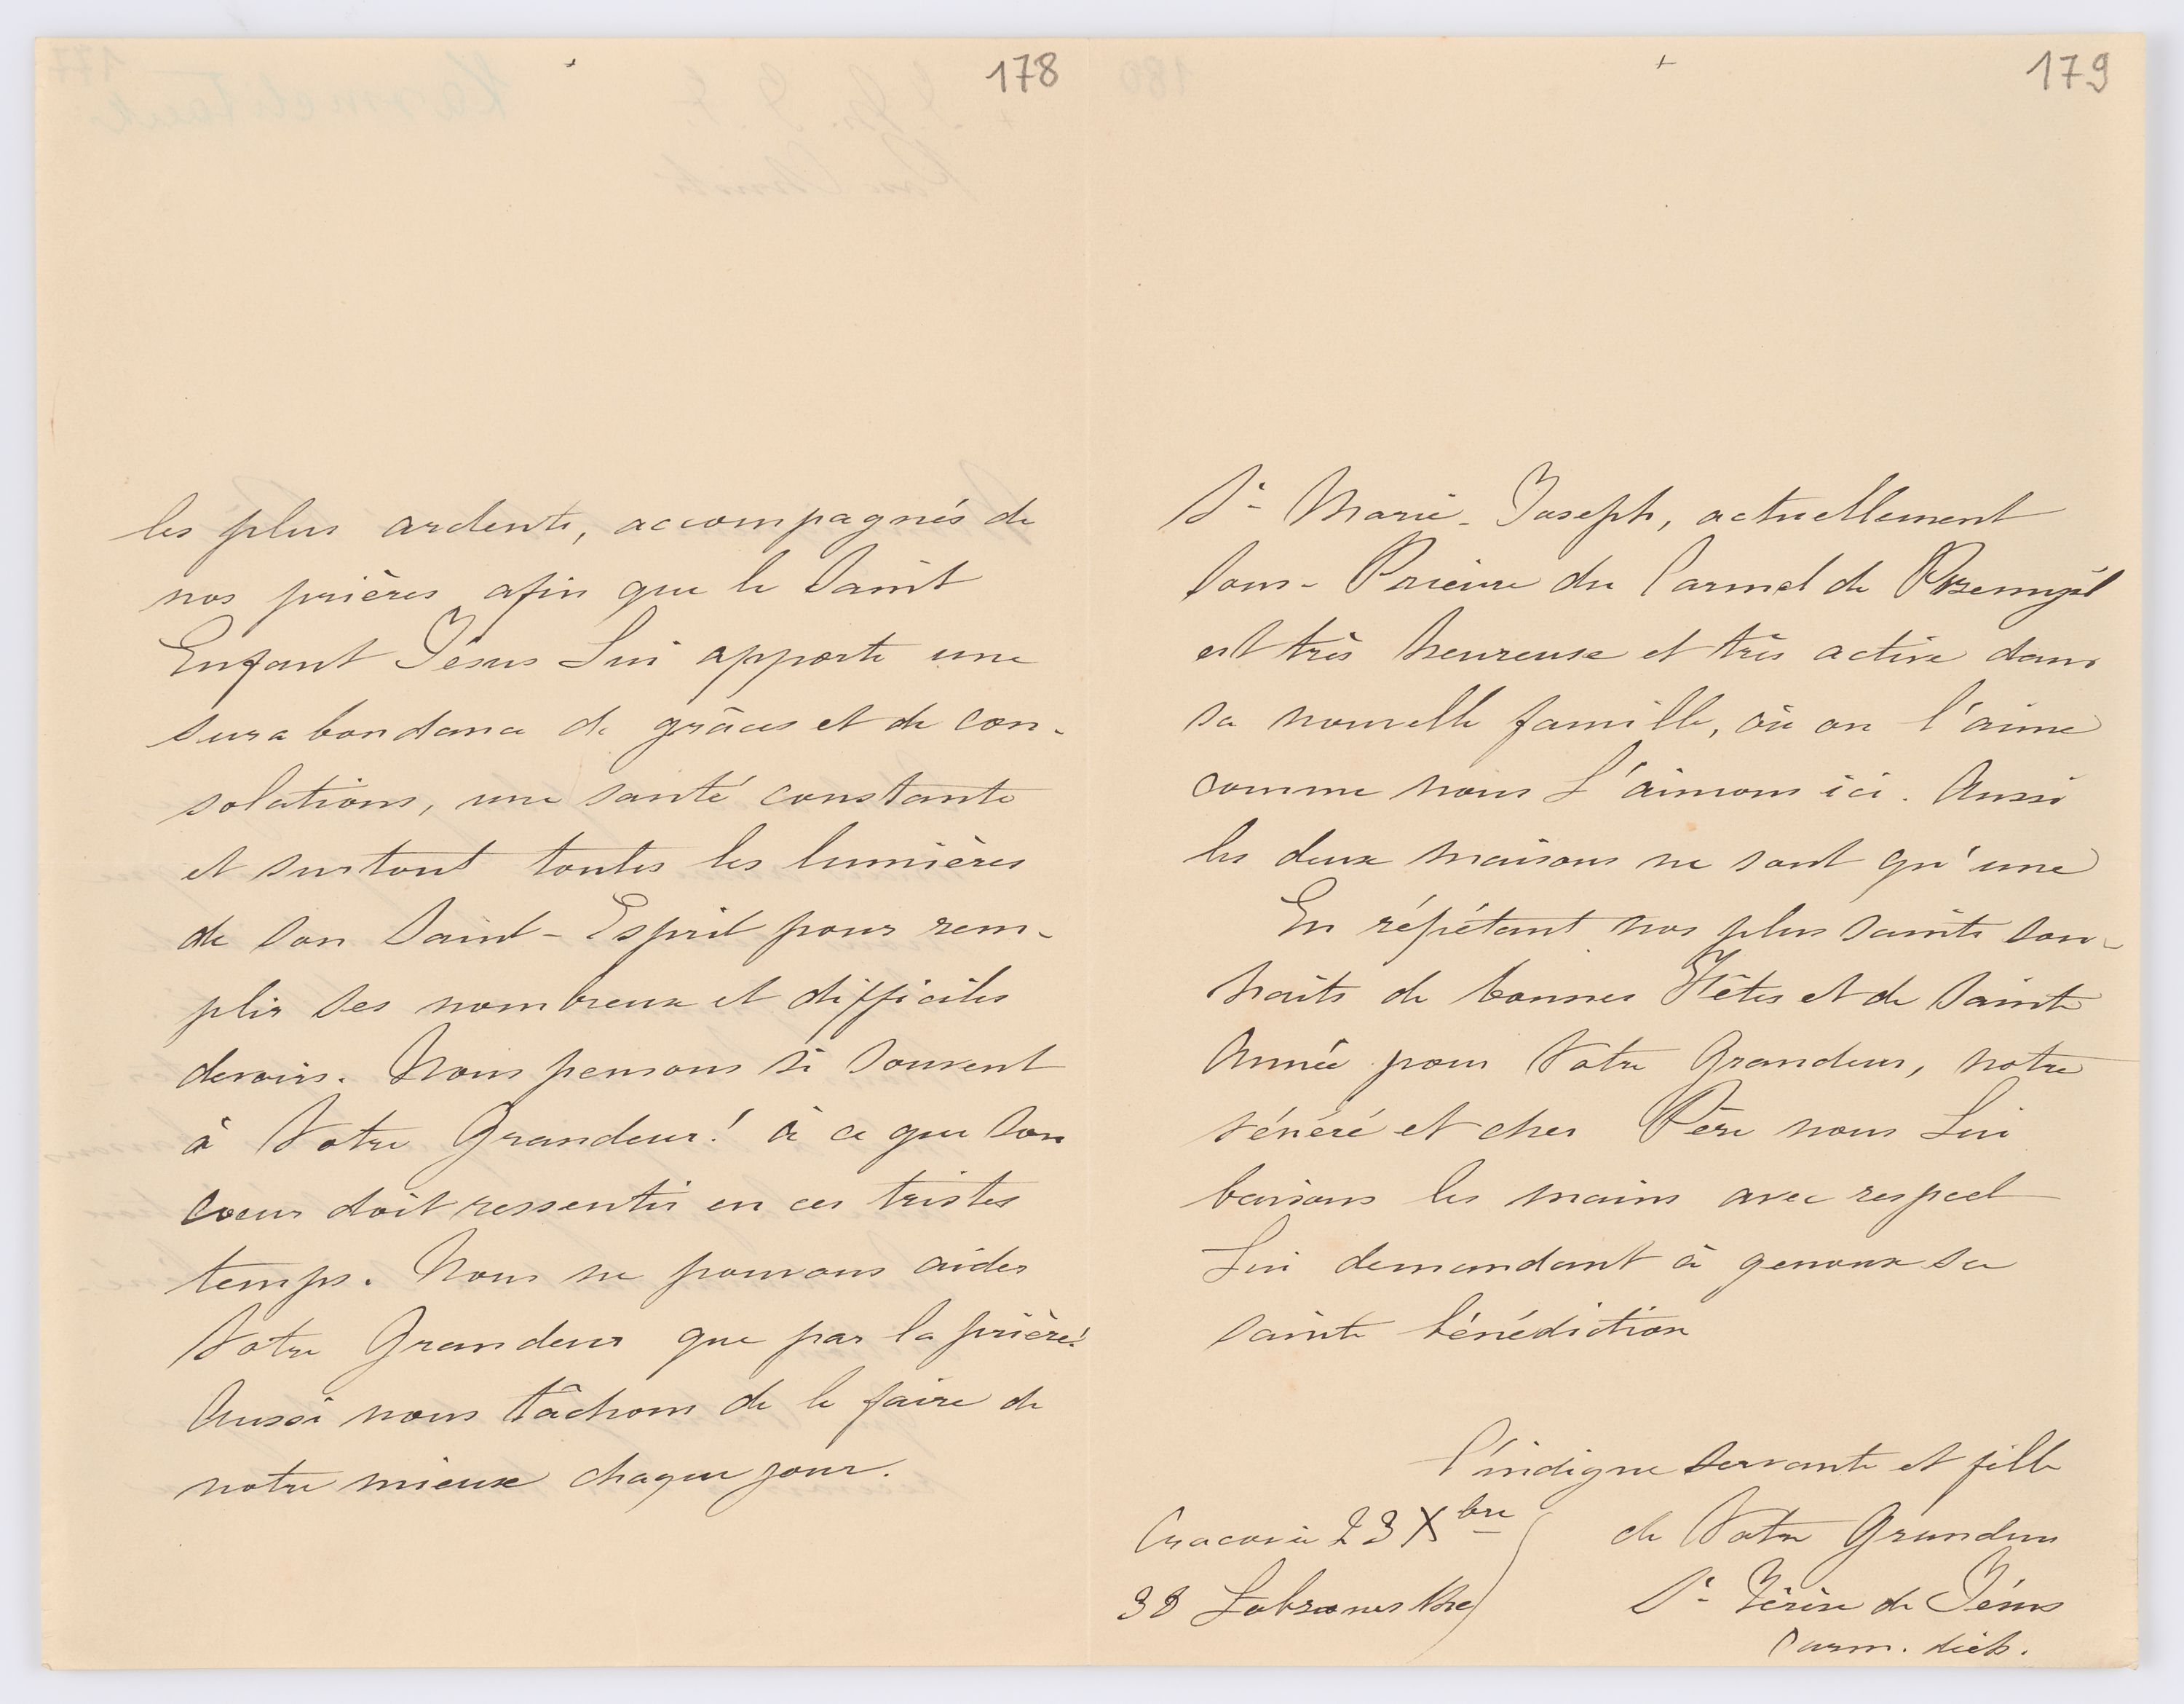 178
les plus ardents, accompagnés de
nos prières afin que le Saint
Enfant Jésus Lui apporte une
surabondance de grâces et de con-
solations, une santé constante
et surtout toutes les lumières
de Son Saint-Esprit pour rem-
plir Ses nombreux et difficiles
devoirs. Nous pensons si souvent
à Votre Grandeur! à ce que Son
coeur doit ressentir en ces tristes
temps. Nous ne pouvons aider
Votre Grandeur que par la prière!
Aussi nous tâchons de le faire de
notre mieux chaque jour.
179
Sr Marie-Joseph, actuellement
Sous-Prieure du Carmel de Przemyśl
est très heureuse et très active dans
sa nouvelle famille, où on l'aime
comme nous L'aimons ici. Aussi
les deux maisons ne sont qu'une
En répétant nos plus saints sou-
haits de bonnes Fêtes et de Sainte
Année pour Votre Grandeur, notre
vénéré et cher Père nous Lui
baisons les mains avec respect
Lui demandant à genoux sa
sainte bénédiction
l'indigne servante et fille
de Votre Grandeur
Sr Térèse de Jésus
carm. déch.
Cracovie 23 Xbre
38 Łobzowska